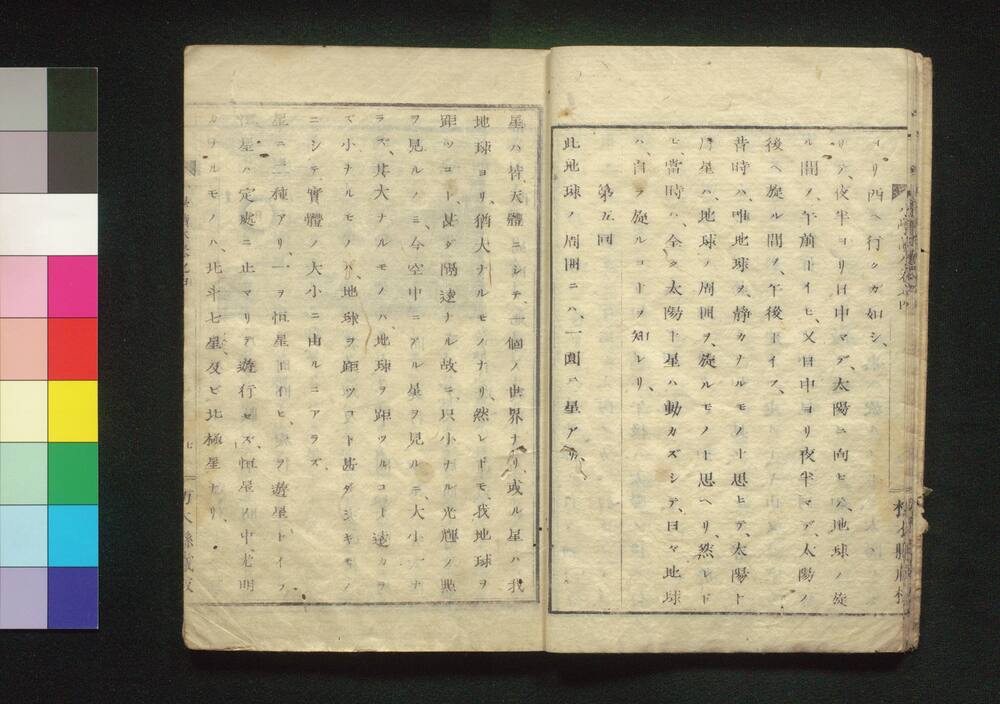 ヨリ西ヘ行クガ如シ、
リテ、夜半ヨリ日中マデ、太陽ニ向ヒ、地球ノ旋
ル間ノ、午前トイヒ、又日中ヨリ夜半マデ、太陽ノ
後ヘ旋ル間ノ、午後トイフ、
昔時ハ、唯地球ノ、静カナルモノト思ヒテ、太陽ト
星ハ、地球ノ周囲ヲ、旋ルモノト思ヘリ、然レド
モ、當時ハ、全ク太陽ト星ハ動カズシテ、日々地球
ハ、自ラ旋ルコトヲ知レリ、
第五回
此地球ノ周囲ニハ、一圓ニ星アリ、
星ハ皆、天體ニシテ、一個ノ世界ナリ、或ル星ハ我
地球ヨリ、猶大ナルモノナリ、然レドモ、我地球ヲ
距ツコト、甚ダ隔遠ナル故ニ、只小ナル光輝ノ點
ヲ見ルノミ、今空中ニアル星ヲ見ルニ、大小一ナ
ラズ、其大ナルモノハ、地球ヲ距ツルコト遠カラ
ズ、小ナルモノハ、地球ヲ距ツコト甚ダ遠キモノ
ニシテ實體ノ大小ニ由ルニアラズ、
星ニ二種アリ、一ヲ恒星トイヒ、一ヲ遊星トイフ、
恒星ハ定處ニ止マリテ、遊行セズ、恒星ノ中、光明
ナルモノハ、北斗七星及ビ北極星ナリ、
七